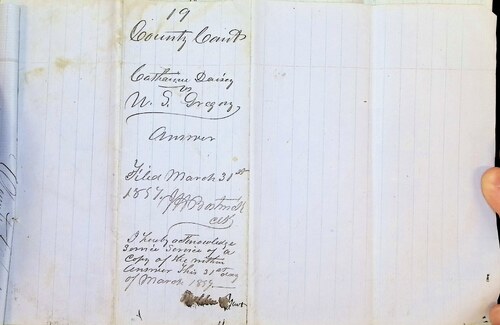 19
County Court
Catharine Daisy
vs
W. S. Gregory
Answer
Filed March 31st
1857
Clk
I hereby acknowledge
Service of a
Copy of the within
Answer This 31st day
of March 1857.